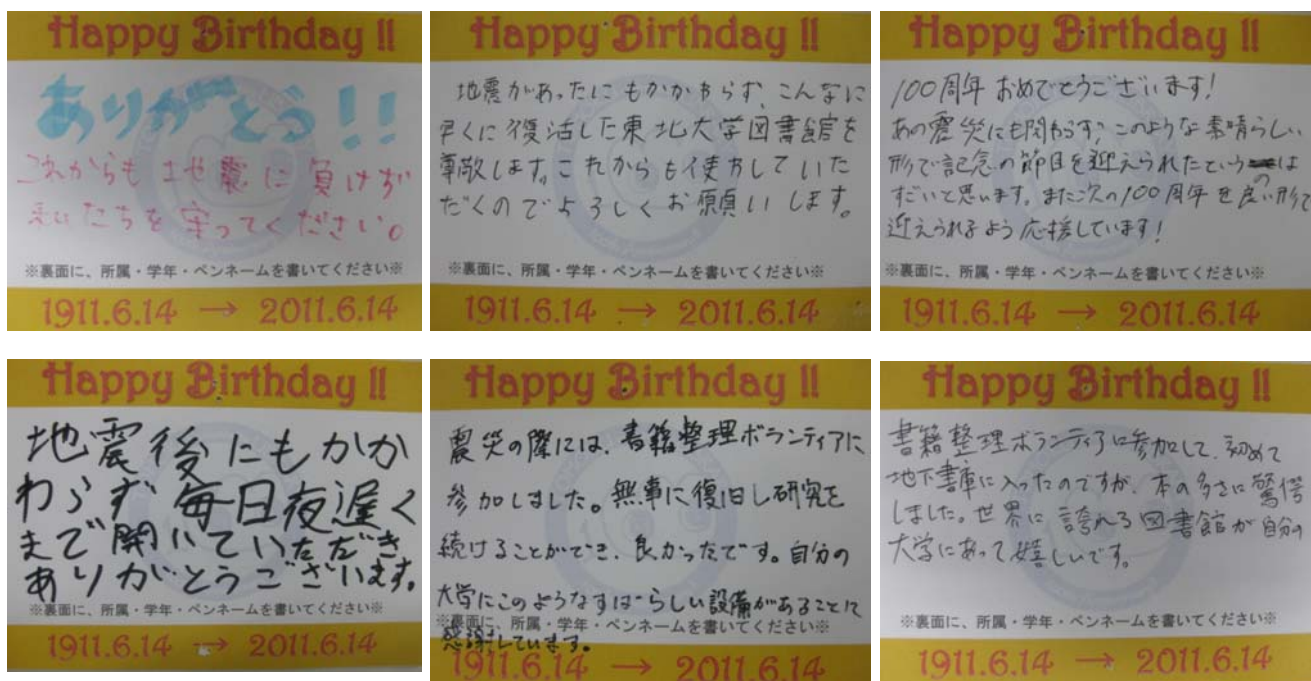 Happy Birthday !!
ありがとう!!
これからも地震に負けず
私たちを守ってください。
※裏面に、所属・学年・ペンネームを書いてください※
1911.6.14 → 2011.6.14
Happy Birthday !!
地震があったにもかかわらず、こんなに
早くに復活した東北大学図書館を
尊敬します。これからも使方していた
だくのでよろしくお願いします。
※裏面に、所属・学年・ペンネームを書いてください※
1911.6.14 → 2011.6.14
Happy Birthday !!
100周年おめでとうございます!
あの震災にも関わらず、このような素晴らしい
形で記念の節目を迎えられたというのは
すごいと思います。また次の100周年を良い形で
迎えられるよう応援しています!
※裏面に、所属・学年・ペンネームを書いてください※
1911.6.14 → 2011.6.14
Happy Birthday !!
地震後にもかか
わらず毎日夜遅く
まで開いていただき
ありがとうございます。
※裏面に、所属・学年・ペンネームを書いてください※
1911.6.14 → 2011.6.14
Happy Birthday !!
震災の際には、書籍整理ボランティアに
参加しました。無事に復旧し研究を
続けることができ、良かったです。自分の
大学にこのようなすばらしい設備があることに
感謝しています。
※裏面に、所属・学年・ペンネームを書いてください※
1911.6.14 → 2011.6.14
Happy Birthday !!
書籍整理ボランティアに参加して、初めて
地下書庫に入ったのですが、本の多さに驚愕
しました。世界に誇れる図書館が自分の
大学にあって嬉しいです。
※裏面に、所属・学年・ペンネームを書いてください※
1911.6.14 → 2011.6.14